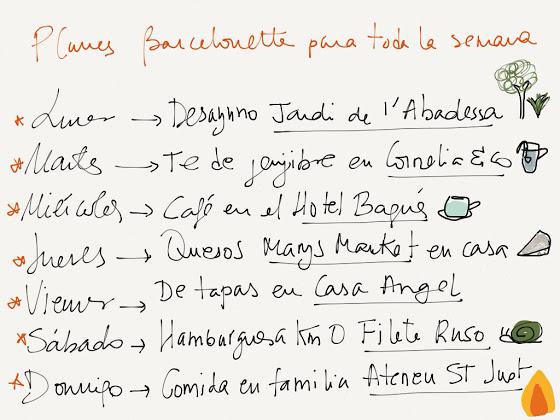 Planes Barcelonette para toda la semana
* Lunes → Desayuno Jardi de l'Abadessa
* Martes → Te de jenjibre en Cornelia & Co
* Miércoles → Café en el Hotel Bagués
* Jueves → Quesos Marys Market en casa
* Viernes → De tapas en Casa Angel
* Sábado → Hamburguesa Km 0 Filete Ruso
* Domingo → Comida en familia Ateneu ST Just